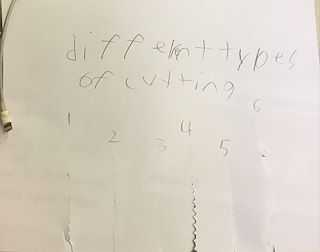 different types
of cutting
6
1
4
2
3
5